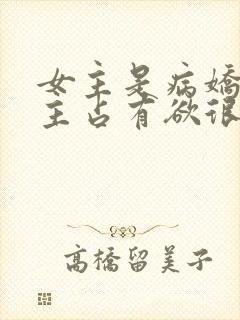 女主是病嬌
主占有欲很
高橋留美子